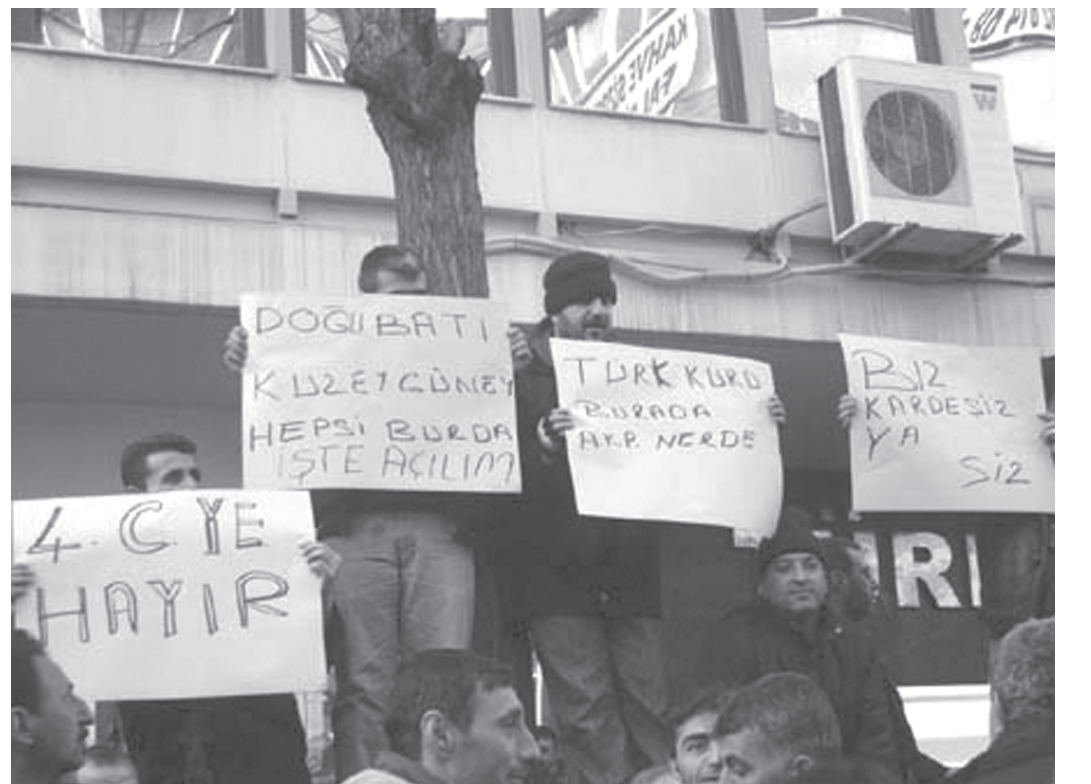 KAHVE
FAL
W
DOĞU BATI
KUZEY GÜNEY
HEPSİ BURDA
İŞTE AÇILIM
TÜRK KÜRD
BURADA
AKP. NERDE
BİZ
KARDEŞİZ
YA
SİZ
4. C YE
HAYIR
URI